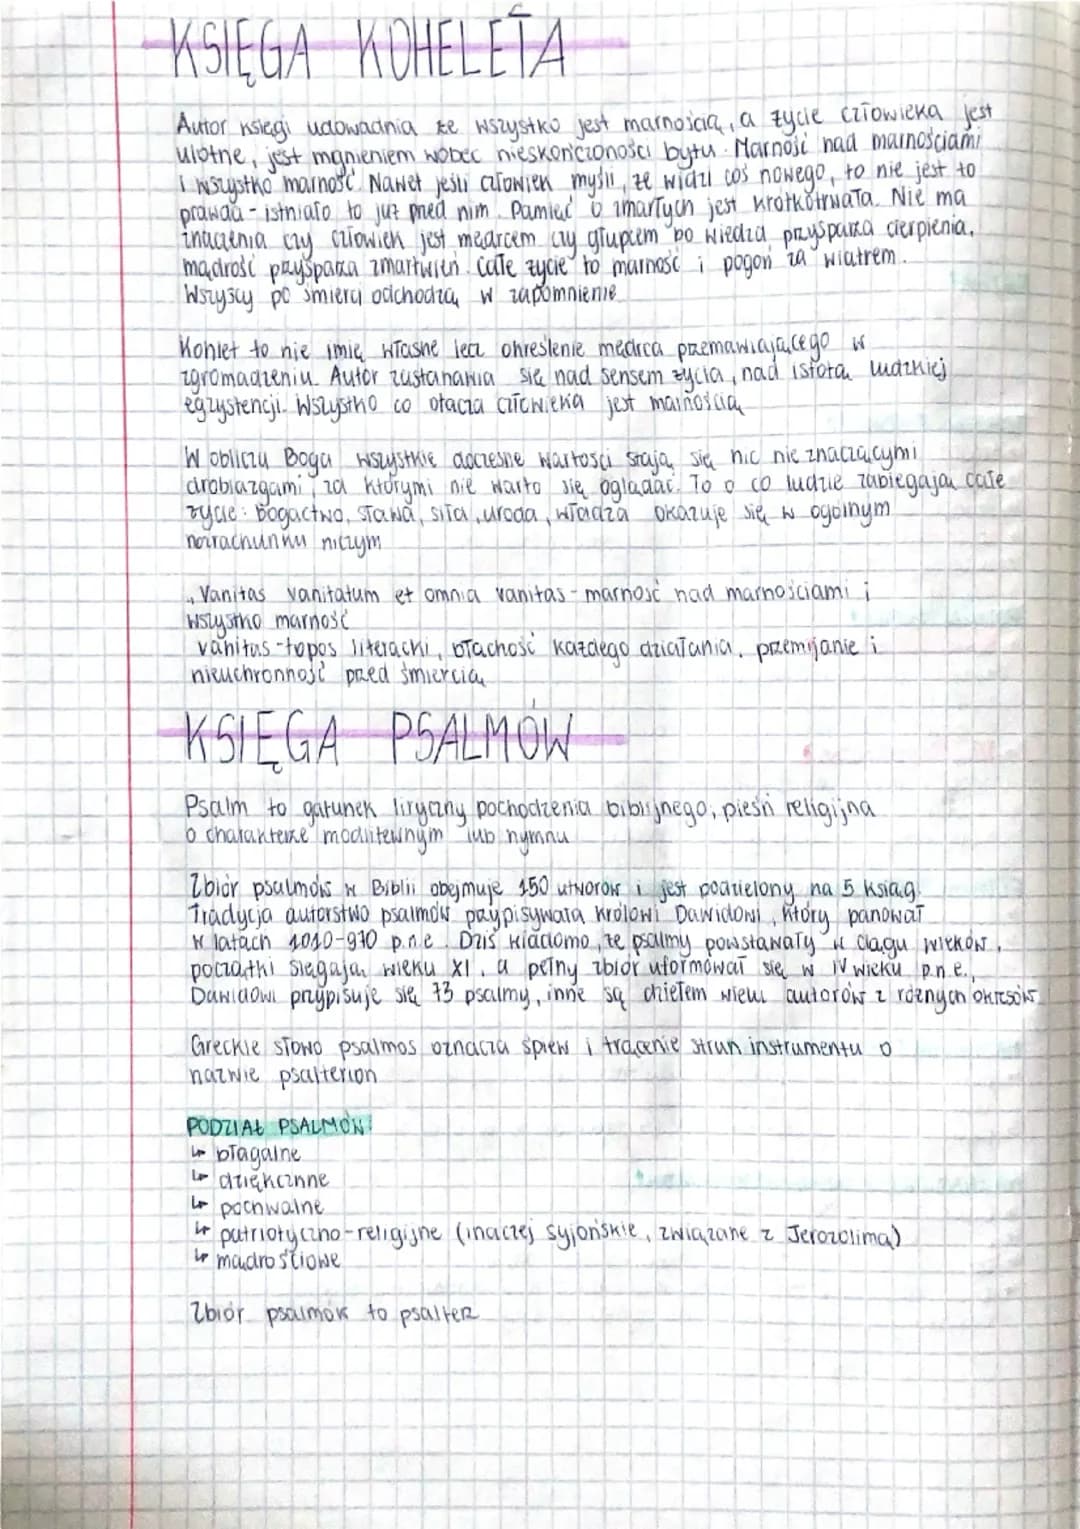 KSIĘGA KOHELETA
Autor księgi udowadnia że wszystko jest marnością, a życie człowieka jest
ulotne, jest mgnieniem wobec nieskończoności bytu. Marność nad marnościami
i wszystko marność. Nawet jeśli człowiek myśli, że widzi coś nowego, to nie jest to
prawda - istniało to już przed nim. Pamięć o zmarłych jest krótkotrwała. Nie ma
znaczenia czy człowiek jest mędrcem czy głupcem bo wiedza przysparza cierpienia,
mądrość przysparza zmartwień. Całe życie to marność i pogoń za wiatrem.
Wszyscy po śmierci odchodzą w zapomnienie
Kohlet to nie imię własne lecz określenie mędrca przemawiającego w
zgromadzeniu. Autor zastanawia się nad sensem życia, nad istotą ludzkiej
egzystencji. Wszystko co otacza człowieka jest marnością
W obliczu Boga wszystkie doczesne wartości stają się nic nie znaczącymi
drobiazgami, za którymi nie warto się oglądać. To o co ludzie zabiegają całe
życie: bogactwo, sława, siła, uroda, władza okazuje się w ogólnym
rozrachunku niczym
„Vanitas vanitatum et omnia vanitas - marność nad marnościami i
wszystko marność
vanitas - topos literacki, błachość każdego działania, przemijanie i
nieuchronność przed śmiercią
KSIĘGA PSALMÓW
Psalm to gatunek liryczny pochodzenia biblijnego, pieśń religijna
o charakterze modlitewnym lub hymnu
Zbiór psalmów w Biblii obejmuje 150 utworów i jest podzielony na 5 ksiąg.
Tradycja autorstwo psalmów przypisywała królowi Dawidowi, który panował
w latach 1010-970 p.n.e. Dziś wiadomo, że psalmy powstawały w ciągu wieków,
początki sięgają wieku XI, a pełny zbiór uformował się w IV wieku p.n.e.,
Dawidowi przypisuje się 73 psalmy, inne są dziełem wielu autorów z różnych okresów
Greckie słowo psalmos oznacza śpiew i trącenie strun instrumentu o
nazwie psalterion
PODZIAŁ PSALMÓW:
↳ błagalne
↳ dziękczynne
↳ pochwalne
↳ patriotyczno-religijne (inaczej syjońskie, związane z Jerozolimą)
↳ mądrościowe
Zbiór psalmów to psałterz